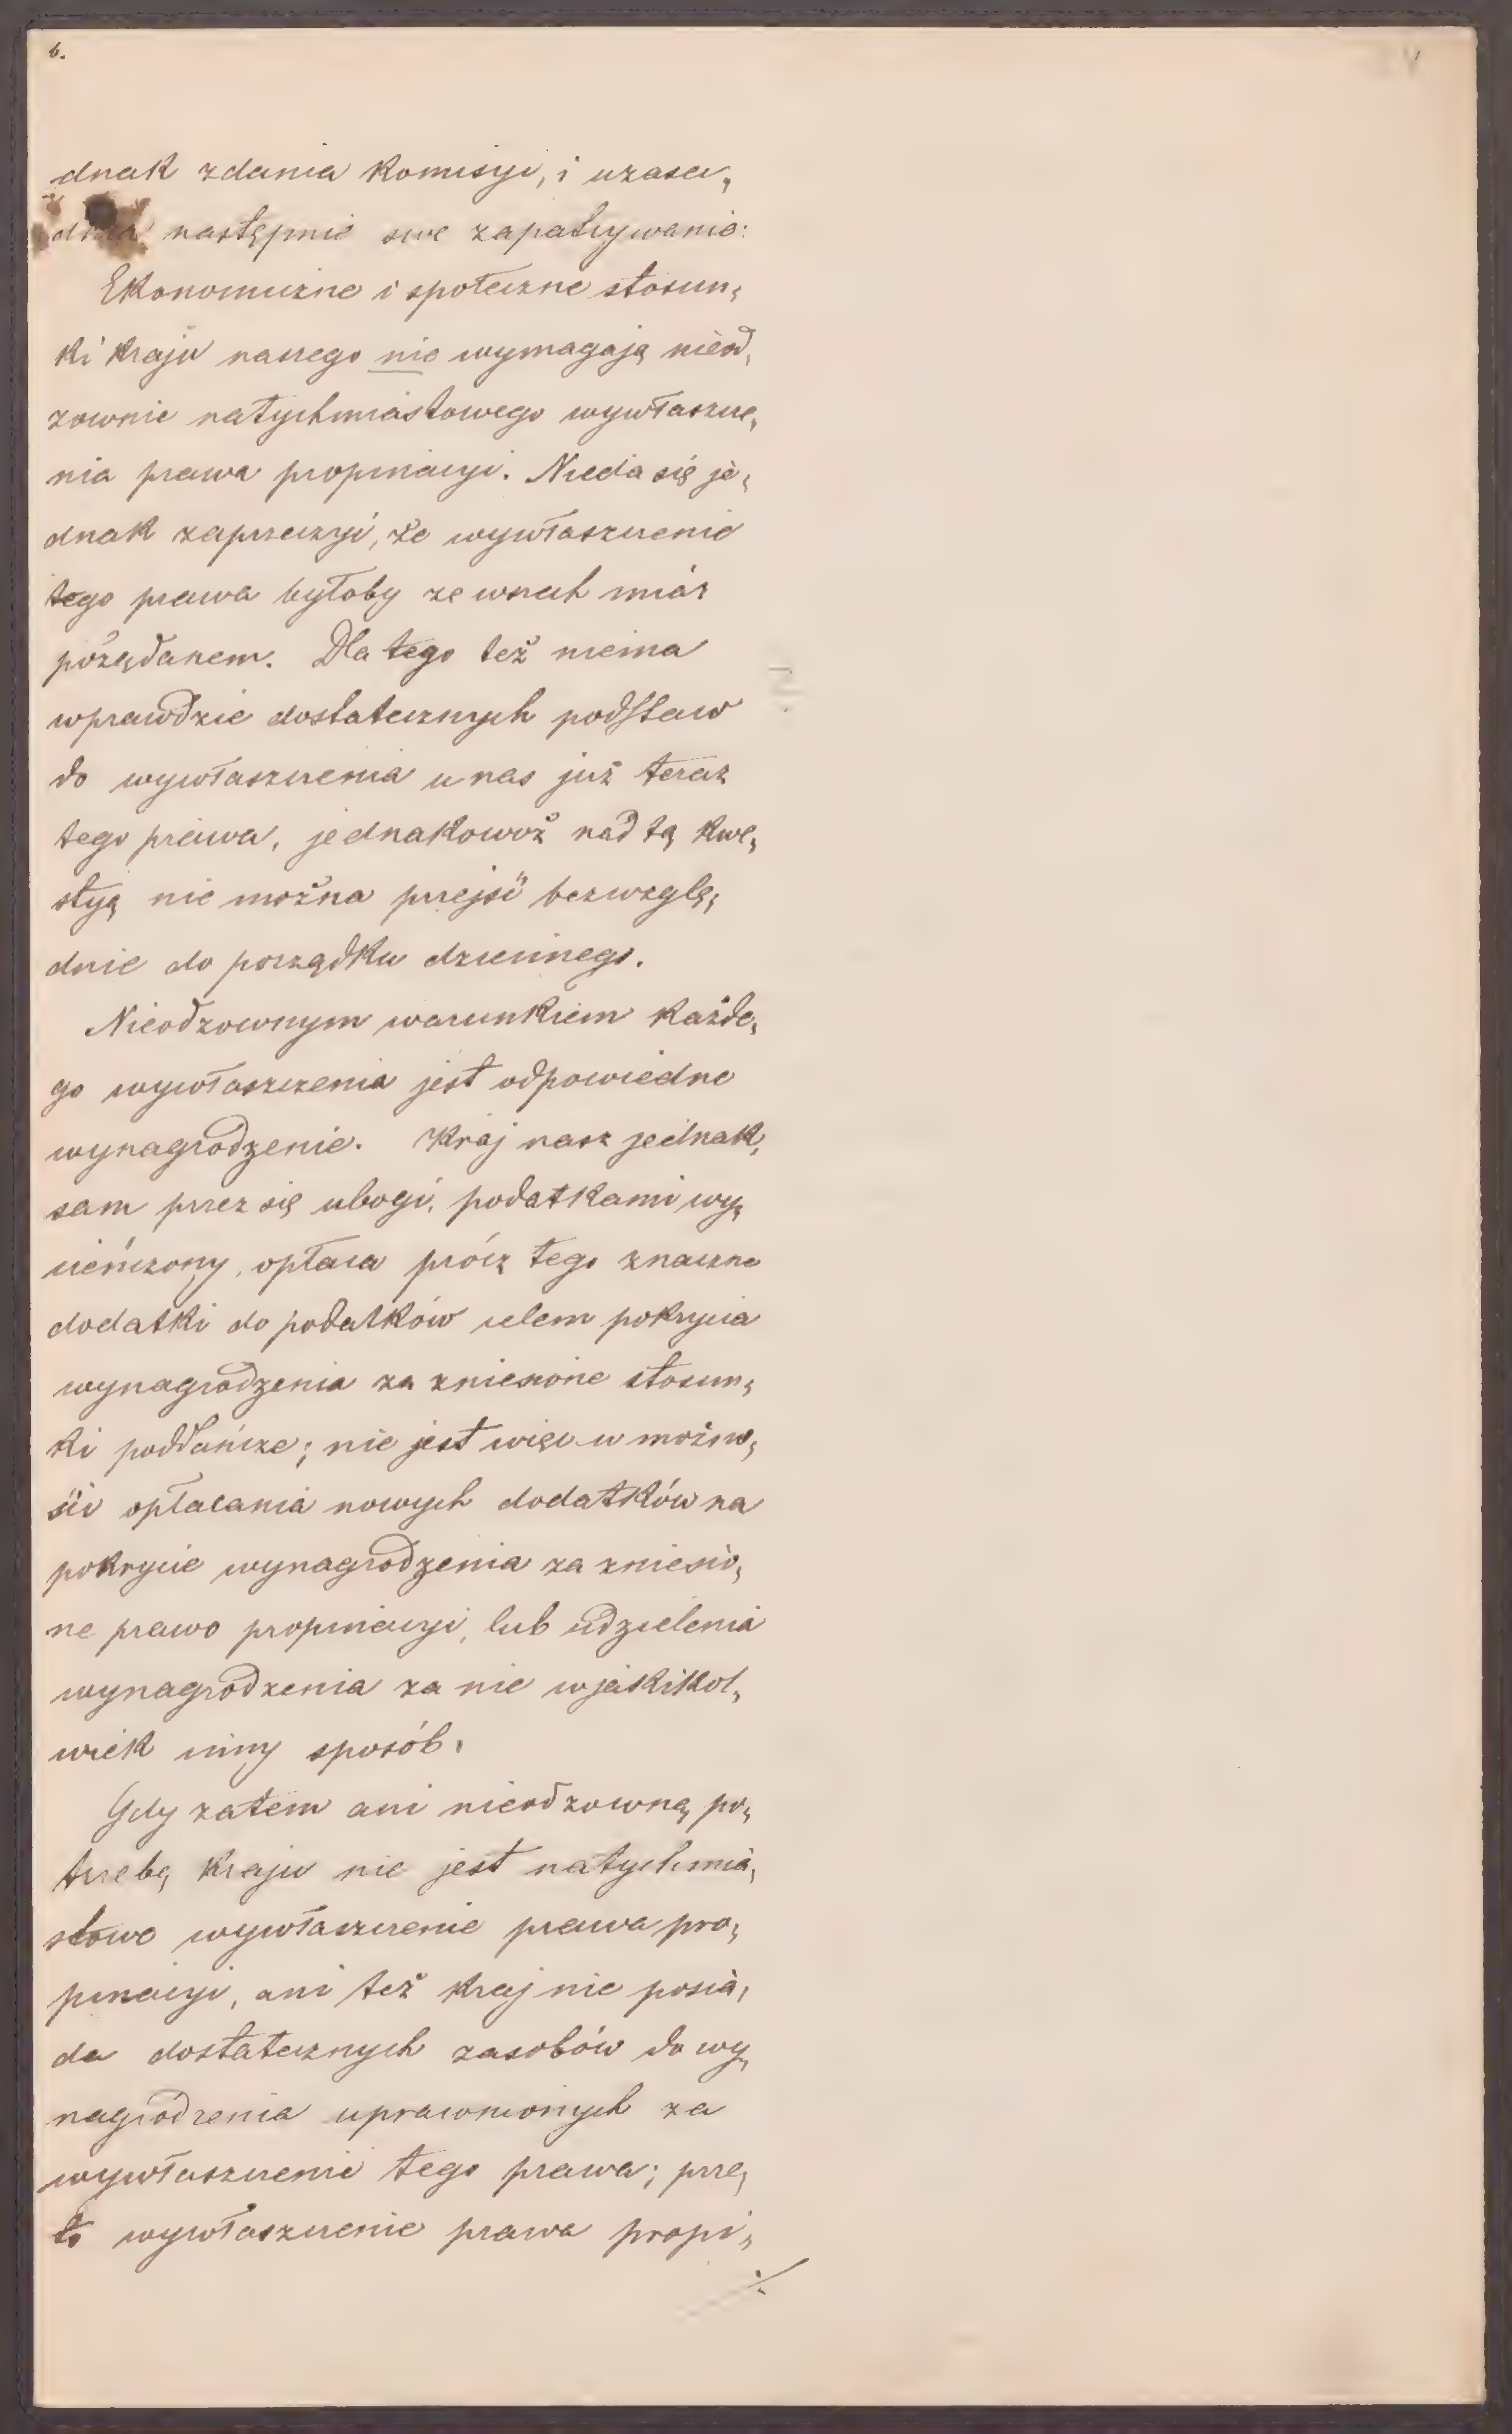 6.
dnak zdania Komisyi, i uzasa„
dnia następnie swe zapatrywanie:
Ekonomiczne i społeczne stosun„
ki kraju naszego nie wymagają nieod„
zownie natychmiastowego wywłaszcze„
nia prawa propinacyi. Nieda się je„
dnak zaprzeczyć, że wywłaszczenie
tego prawa byłoby ze wszech miar
pożądanem. Dla tego też niema
wprawdzie dostatecznych podstaw
do wywłaszczenia u nas już teraz
tego prawa, jednakowoż nad tą kwe„
styą nie można przejść bezwzglę„
dnie do porządku dziennego.
Nieodzownym warunkiem każde„
go wywłaszczenia jest odpowiedne
wynagrodzenie. Kraj nasz jednak,
sam przez się ubogi, podatkami wy„
cieńczony, opłaca prócz tego znaczne
dodatki do podatków celem pokrycia
wynagrodzenia za zniesione stosun„
ki poddańcze; nie jest więc w możno„
ści opłacania nowych dodatków na
pokrycie wynagrodzenia za zniesio„
ne prawo propinacyi, lub udzielenia
wynagrodzenia za nie w jakikol„
wiek inny sposób.
Gdy zatem ani nieodzowną po„
trzebą kraju nie jest natychmia„
stowe wywłaszczenie prawa pro„
pinacyi, ani też kraj nie posia„
da dostatecznych zasobów do wy„
nagrodzenia uprawnionych za
wywłaszczenie tego prawa; prze„
to wywłaszczenie prawa propi„
./.